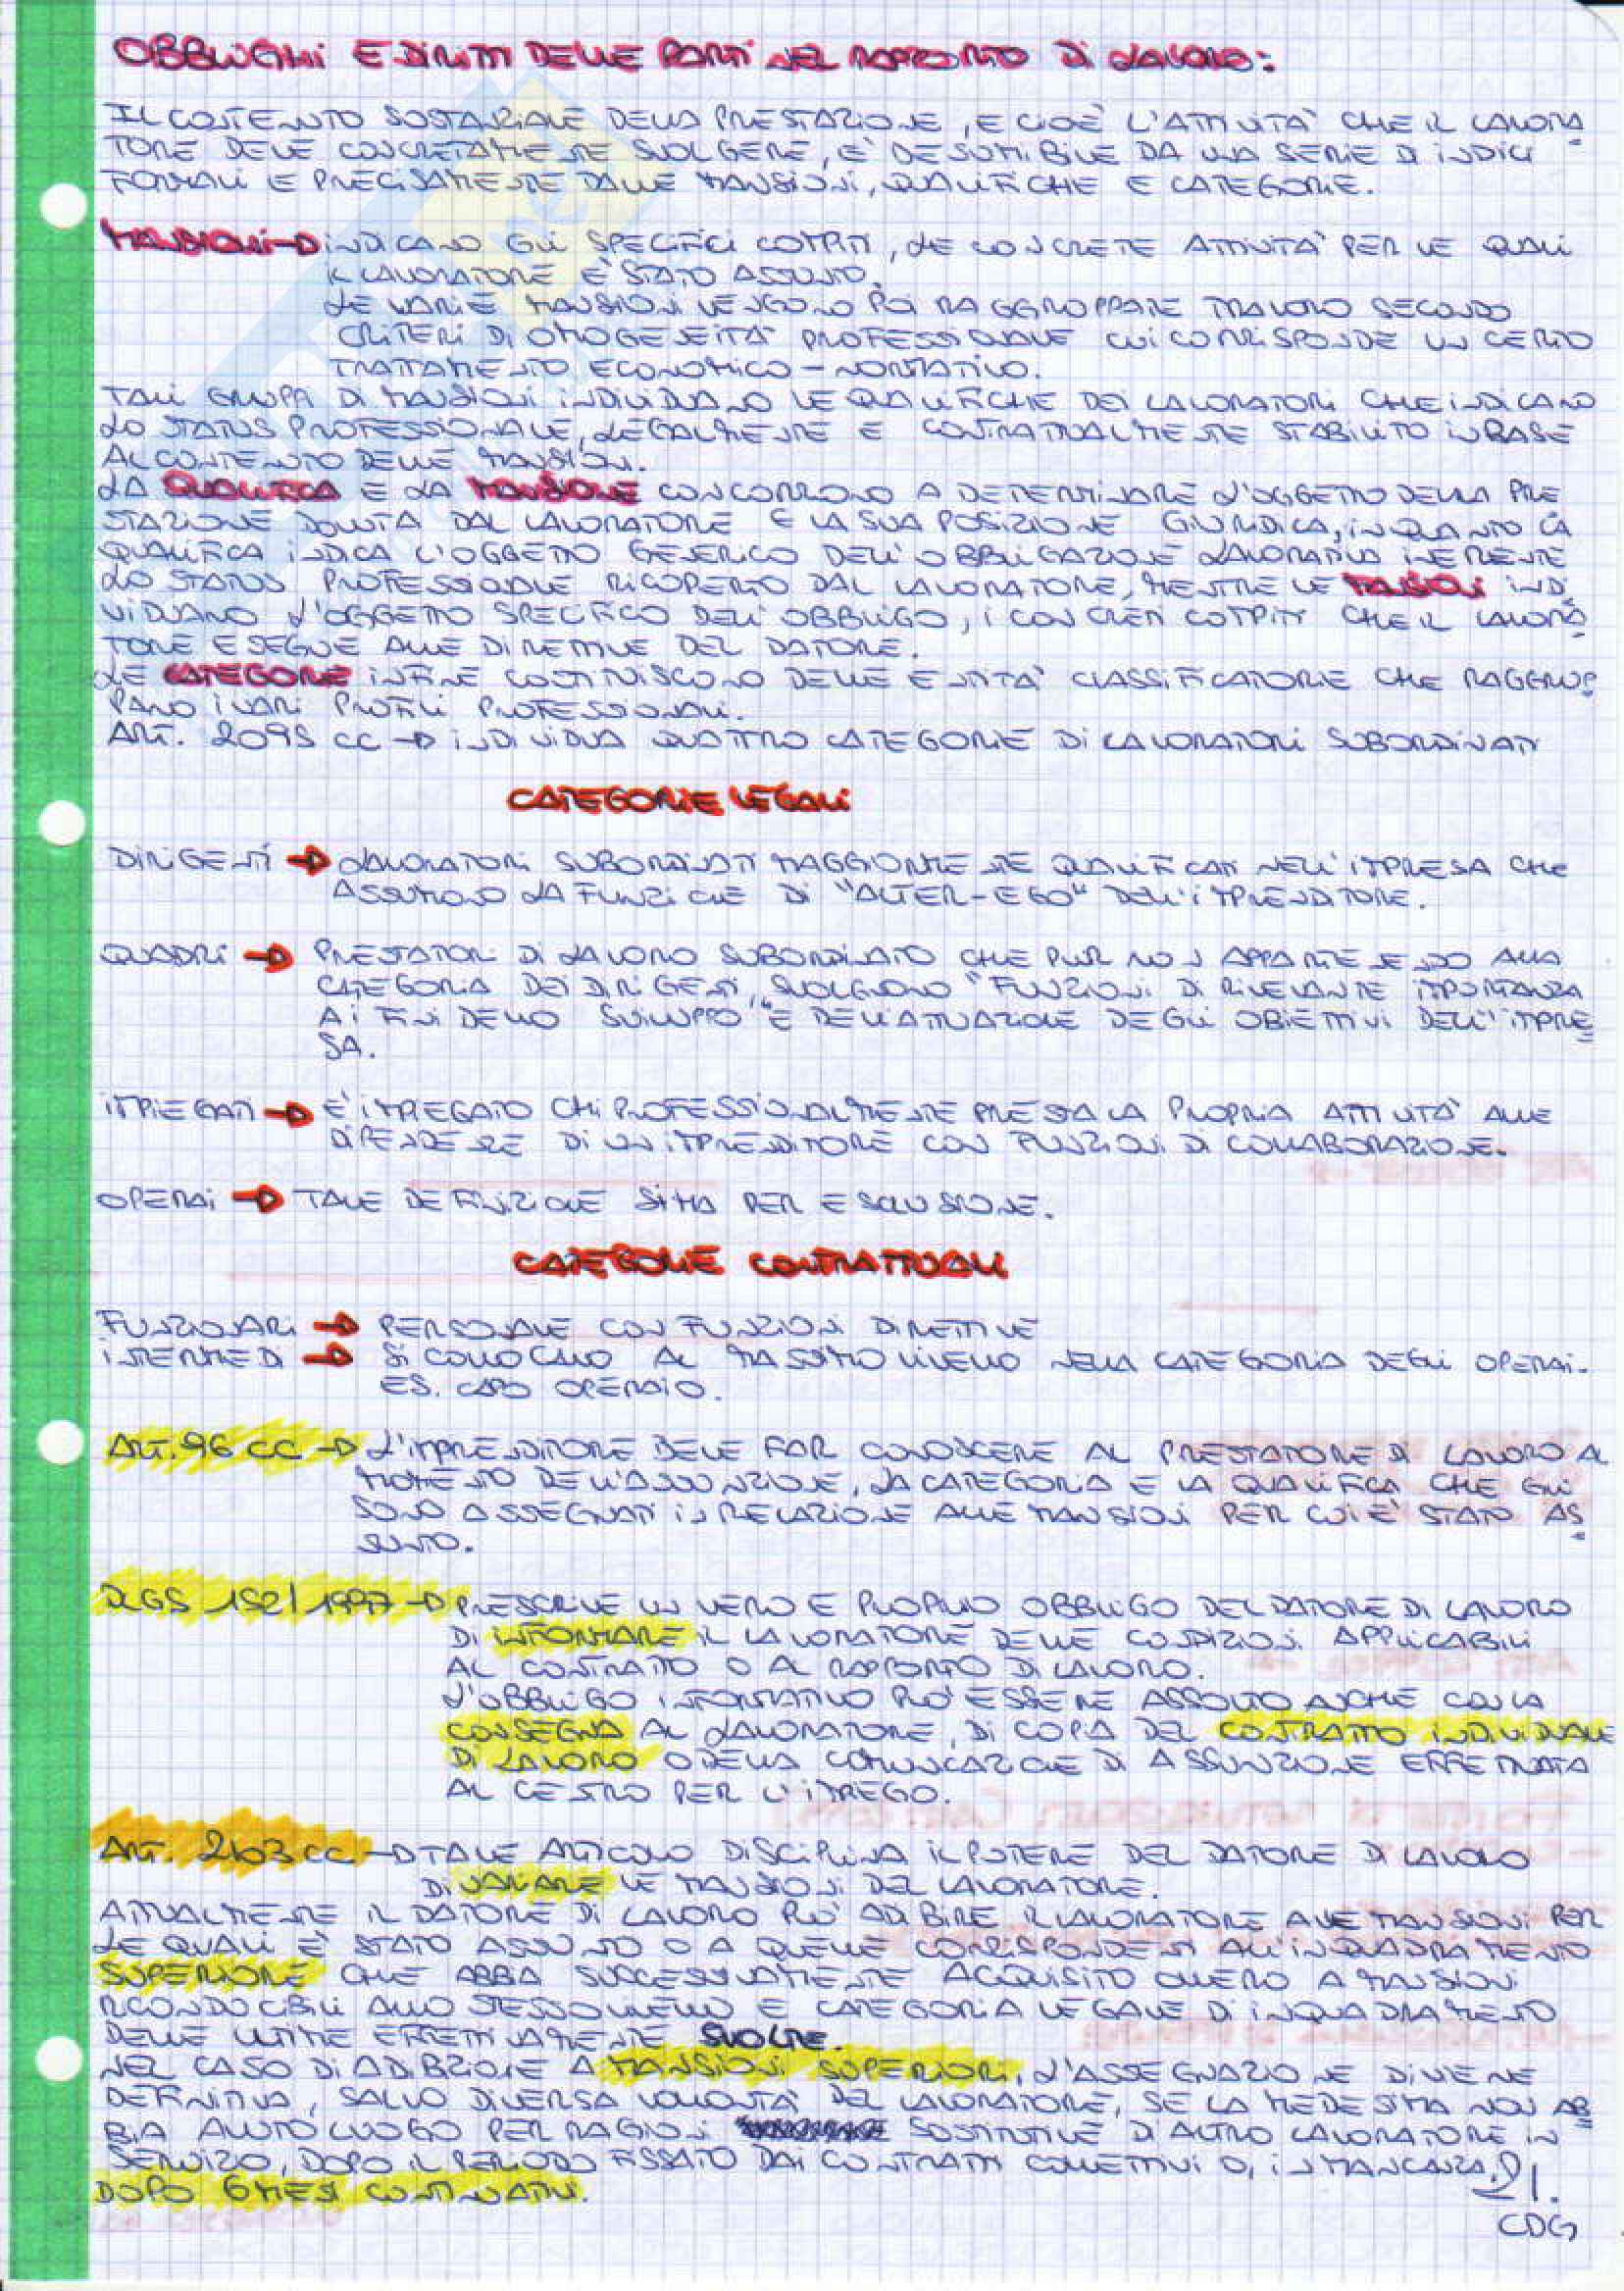 OBBLIGHI E DIRITTI DELLE PARTI NEL RAPPORTO DI LAVORO:
IL CONTENUTO SOSTANZIALE DELLA PRESTAZIONE, E CIOE' L'ATTIVITA' CHE IL LAVORA
TORE DEVE CONCRETAMENTE SVOLGERE, E' DESUMIBILE DA UNA SERIE DI INDICI
FORMALI E PRECISAMENTE DALLE MANSIONI, QUALIFICHE E CATEGORIE.
MANSIONI → INDICANO GLI SPECIFICI COMPITI, LE CONCRETE ATTIVITA' PER LE QUALI
IL LAVORATORE E' STATO ASSUNTO.
LE VARIE MANSIONI VENGONO POI RAGGRUPPATE TRA LORO SECONDO
CRITERI DI OMOGENEITA' PROFESSIONALE CUI CORRISPONDE UN CERTO
TRATTAMENTO ECONOMICO-NORMATIVO.
TALI GRUPPI DI MANSIONI INDIVIDUANO LE QUALIFICHE DEI LAVORATORI CHE INDICANO
LO STATUS PROFESSIONALE, LEGALMENTE E CONTRATTUALMENTE STABILITO IN BASE
AL CONTENUTO DELLE MANSIONI.
LA QUALIFICA E LA MANSIONE CONCORRONO A DETERMINARE L'OGGETTO DELLA PRE
STAZIONE DOVUTA DAL LAVORATORE E LA SUA POSIZIONE GIURIDICA, IN QUANTO LA
QUALIFICA INDICA L'OGGETTO GENERICO DELL'OBBLIGAZIONE LAVORATIVA INERENTE
LO STATUS PROFESSIONALE RICOPERTO DAL LAVORATORE, MENTRE LE MANSIONI INDI
VIDUANO L'OGGETTO SPECIFICO DELL'OBBLIGO, I CONCRETI COMPITI CHE IL LAVORA
TORE ESEGUE ALLE DIRETTIVE DEL DATORE.
LE CATEGORIE INFINE COSTITUISCONO DELLE ENTITA' CLASSIFICATORIE CHE RAGGRUP
PANO I VARI PROFILI PROFESSIONALI.
ART. 2095 CC → INDIVIDUA QUATTRO CATEGORIE DI LAVORATORI SUBORDINATI
CATEGORIE LEGALI
DIRIGENTI → LAVORATORI SUBORDINATI MAGGIORMENTE QUALIFICATI NELL'IMPRESA CHE
ASSUMONO LA FUNZIONE DI "ALTER-EGO" DELL'IMPRENDITORE.
QUADRI → PRESTATORI DI LAVORO SUBORDINATO CHE PUR NON APPARTENENDO ALLA
CATEGORIA DEI DIRIGENTI, SVOLGONO "FUNZIONI DI RILEVANTE IMPORTANZA
AI FINI DELLO SVILUPPO" E DELL'ATTUAZIONE DEGLI OBIETTIVI DELL'IMPRE
SA.
IMPIEGATI → E' IMPIEGATO CHI PROFESSIONALMENTE PRESTA LA PROPRIA ATTIVITA' ALLE
DIPENDENZE DI UN IMPRENDITORE CON FUNZIONI DI COLLABORAZIONE.
OPERAI → TALE DEFINIZIONE SI HA PER ESCLUSIONE.
CATEGORIE CONTRATTUALI
FUNZIONARI → PERSONALE CON FUNZIONI DIRETTIVE
INTERMEDI → SI COLLOCANO AL MASSIMO LIVELLO NELLA CATEGORIA DEGLI OPERAI.
ES. CAPO OPERAIO.
ART. 96 CC → L'IMPRENDITORE DEVE FAR CONOSCERE AL PRESTATORE DI LAVORO AL
MOMENTO DELL'ASSUNZIONE, LA CATEGORIA E LA QUALIFICA CHE GLI
SONO ASSEGNATI IN RELAZIONE ALLE MANSIONI PER CUI E' STATO AS
SUNTO.
DLGS 152/1997 → PRESCRIVE UN VERO E PROPRIO OBBLIGO DEL DATORE DI LAVORO
DI INFORMARE IL LAVORATORE DELLE CONDIZIONI APPLICABILI
AL CONTRATTO O AL RAPPORTO DI LAVORO.
L'OBBLIGO INFORMATIVO PUO' ESSERE ASSOLTO ANCHE CON LA
CONSEGNA AL LAVORATORE, DI COPIA DEL CONTRATTO INDIVIDUALE
DI LAVORO O DELLA COMUNICAZIONE DI ASSUNZIONE EFFETTUATA
AL CENTRO PER L'IMPIEGO.
ART. 2103 CC → TALE ARTICOLO DISCIPLINA IL POTERE DEL DATORE DI LAVORO
DI VARIARE LE MANSIONI DEL LAVORATORE.
ATTUALMENTE IL DATORE DI LAVORO PUO' ADIBIRE IL LAVORATORE ALLE MANSIONI PER
LE QUALI E' STATO ASSUNTO O A QUELLE CORRISPONDENTI ALL'INQUADRAMENTO
SUPERIORE CHE ABBIA SUCCESSIVAMENTE ACQUISITO OVVERO A MANSIONI
RICONDUCIBILI ALLO STESSO LIVELLO E CATEGORIA LEGALE DI INQUADRAMENTO
DELLE ULTIME EFFETTIVAMENTE SVOLTE.
NEL CASO DI ADIBIZIONE A MANSIONI SUPERIORI, L'ASSEGNAZIONE DIVIENE
DEFINITIVA, SALVO DIVERSA VOLONTA' DEL LAVORATORE, SE LA MEDESIMA NON AB
BIA AVUTO LUOGO PER RAGIONI SOSTITUTIVE DI ALTRO LAVORATORE IN
SERVIZIO, DOPO IL PERIODO FISSATO DAI CONTRATTI COLLETTIVI O, IN MANCANZA,
DOPO 6 MESI CONTINUATIVI.
21.
CDG